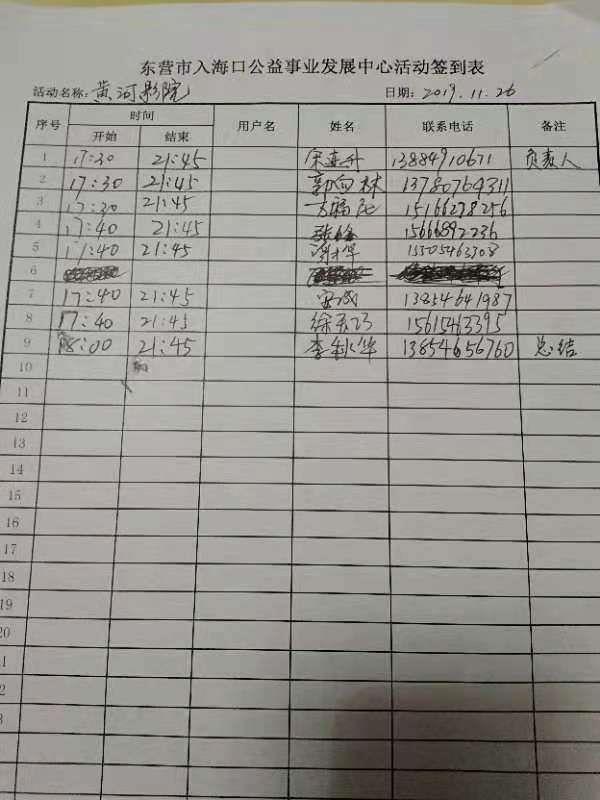 东营市入海口公益事业发展中心活动签到表
活动名称: 黄河影院 日期: 2019.11.26
序号 时间 用户名 姓名 联系电话 备注
开始 结束
1 17:30 21:45 宋连升 13884910671 负责人
2 17:30 21:45 郭向林 13780764311
3 17:30 21:45 15166278256
4 17:40 21:45 张峰 15666892236
5 17:40 21:45 15305463308
6
7 17:40 21:45 13854641987
8 17:40 21:45 15615463395
9 18:00 21:45 李秋华 13854656760 总结
10
11
12
13
14
15
16
17
18
19
20
1
2
3